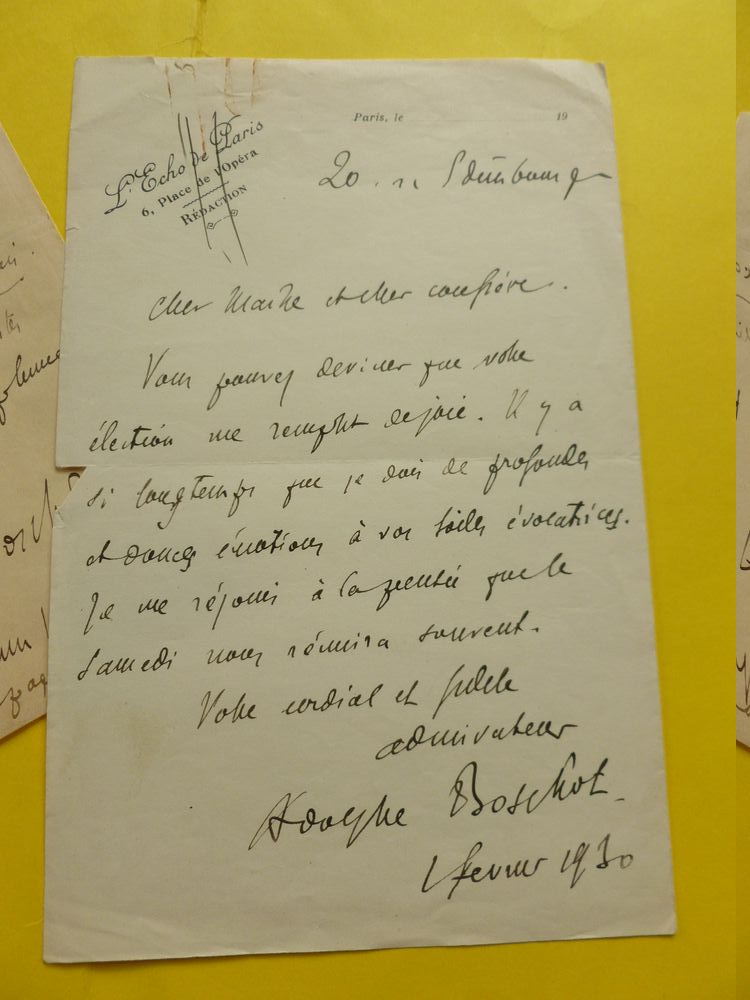 L'Echo de Paris
6, Place de l'Opéra
RÉDACTION
Paris, le 19
20. r. Edimbourg
Cher Maître et cher confrère.
Vous pouvez deviner que votre
élection me remplit de joie. Il y a
si longtemps que je dois de profondes
et douces émotions à vos toiles évocatrices.
Je me réjouis à la pensée que le
samedi nous réunira souvent.
Votre cordial et fidèle
admirateur
Adolphe Boschot
1 février 1930